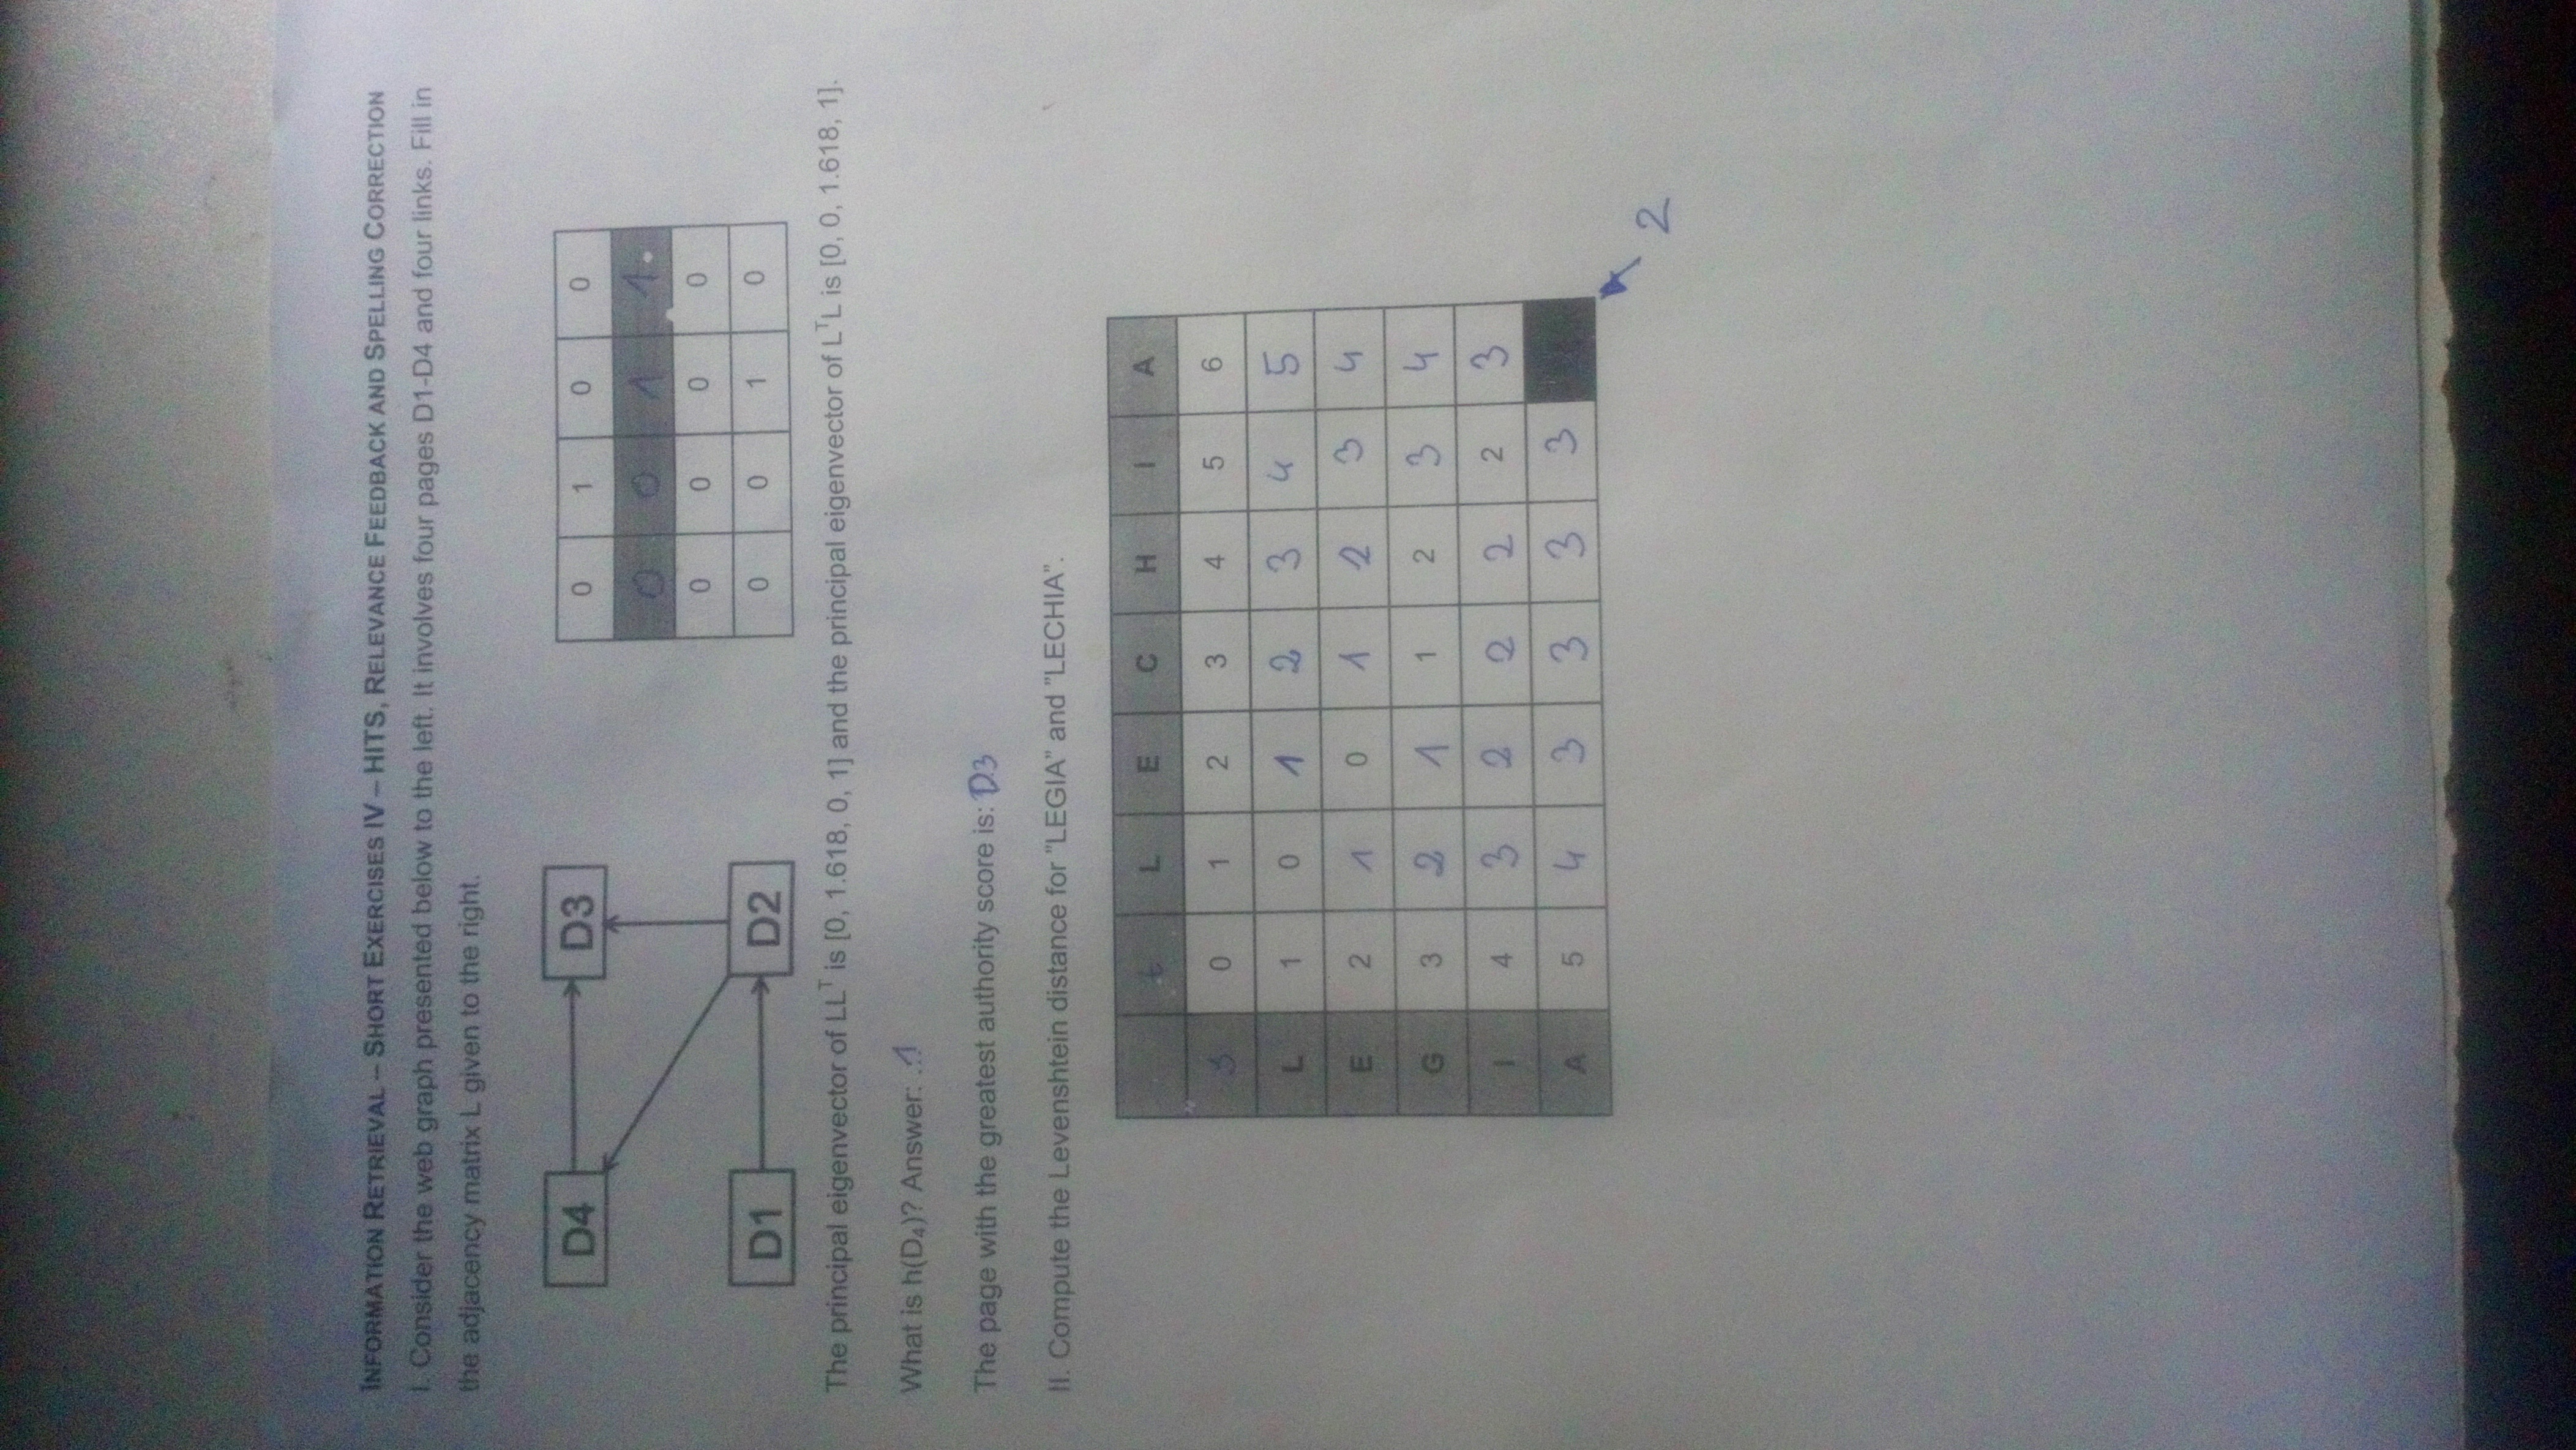 INFORMATION RETRIEVAL – SHORT EXERCISES IV – HITS, RELEVANCE FEEDBACK AND SPELLING CORRECTION
I. Consider the web graph presented below to the left. It involves four pages D1-D4 and four links. Fill in
the adjacency matrix L given to the right.
D4 D3
D1 D2
0 1 0 0
0 0 1 1
0 0 0 0
0 0 1 0
The principal eigenvector of LLᵀ is [0, 1.618, 0, 1] and the principal eigenvector of LᵀL is [0, 0, 1.618, 1].
What is h(D₄)? Answer: ..1
The page with the greatest authority score is: D3
II. Compute the Levenshtein distance for "LEGIA" and "LECHIA".
t L E C H I A
s 0 1 2 3 4 5 6
L 1 0 1 2 3 4 5
E 2 1 0 1 2 3 4
G 3 2 1 1 2 3 4
I 4 3 2 2 2 2 3
A 5 4 3 3 3 3
2